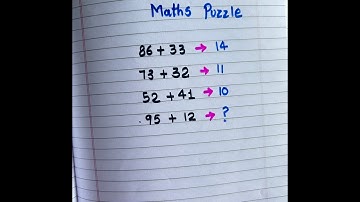 Maths Puzzle
86 + 33 → 14
73 + 32 → 11
52 + 41 → 10
95 + 12 → ?